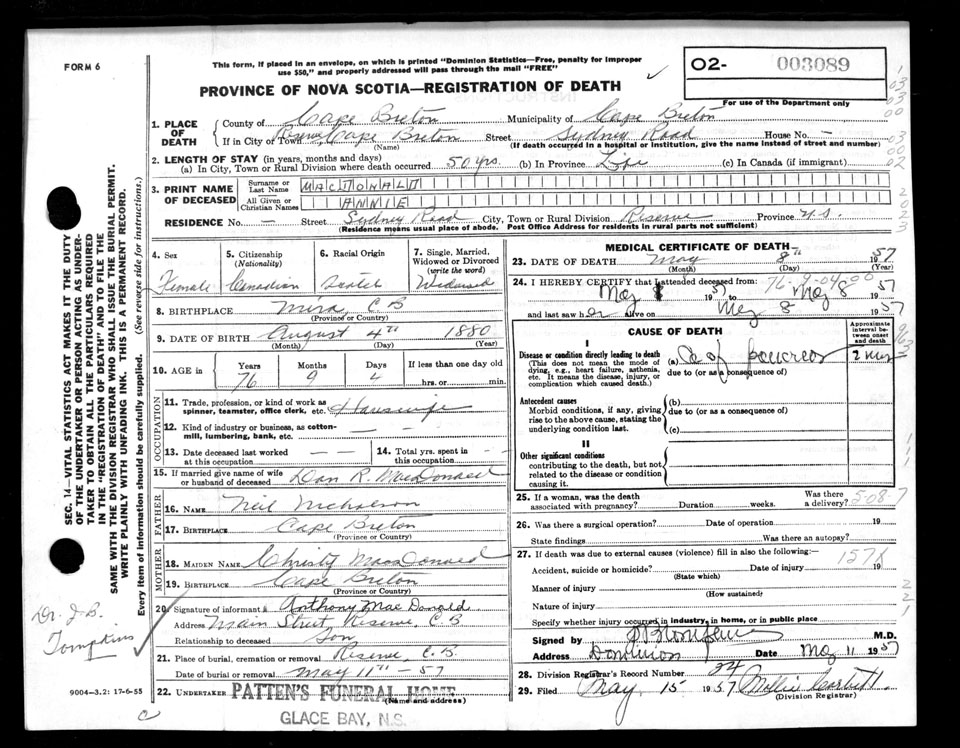 FORM 6
This form, if placed in an envelope, on which is printed "Dominion Statistics—Free, penalty for improper
use $50," and properly addressed will pass through the mail "FREE"
O2- 003089
For use of the Department only
PROVINCE OF NOVA SCOTIA—REGISTRATION OF DEATH
1. PLACE OF DEATH
County of Cape Breton Municipality of Cape Breton
If in City or Town Reserve, Cape Breton Street Sydney Road House No. —
(Name) (If death occurred in a hospital or institution, give the name instead of street and number)
2. LENGTH OF STAY (in years, months and days)
(a) In City, Town or Rural Division where death occurred 50 yrs. (b) In Province Life (c) In Canada (if immigrant)
3. PRINT NAME OF DECEASED
Surname or Last Name MACDONALD
All Given or Christian Names ANNIE
RESIDENCE No. — Street Sydney Road City, Town or Rural Division Reserve Province N.S.
(Residence means usual place of abode. Post Office Address for residents in rural parts not sufficient)
4. Sex
Female
5. Citizenship (Nationality)
Canadian
6. Racial Origin
Scotch
7. Single, Married, Widowed or Divorced (write the word)
Widowed
8. BIRTHPLACE Mira, C B
(Province or Country)
9. DATE OF BIRTH August 4th 1880
(Month) (Day) (Year)
10. AGE in Years Months Days If less than one day old
76 9 4 hrs. or min.
OCCUPATION
11. Trade, profession, or kind of work as
spinner, teamster, office clerk, etc. Housewife
12. Kind of industry or business, as cotton-
mill, lumbering, bank, etc. —
13. Date deceased last worked at this occupation — —
14. Total yrs. spent in this occupation — —
15. If married give name of wife
or husband of deceased Dan R. MacDonald
FATHER
16. NAME Neil Nicholson
17. BIRTHPLACE Cape Breton
(Province or Country)
MOTHER
18. MAIDEN NAME Christy MacDonald
19. BIRTHPLACE Cape Breton
(Province or Country)
20. Signature of informant Anthony MacDonald
Address Main Street, Reserve, C B
Relationship to deceased Son
21. Place of burial, cremation or removal Reserve, C.B.
Date of burial or removal May 11th - 57
22. UNDERTAKER PATTEN'S FUNERAL HOME
(Name and address)
GLACE BAY, N.S.
9004-3.2: 17-6-55
MEDICAL CERTIFICATE OF DEATH
23. DATE OF DEATH May 8th 1957
(Month) (Day) (Year)
24. I HEREBY CERTIFY that I attended deceased from:
76-9-04-00
May 8 1957 May 8 1957
and last saw her alive on May 8 1957
CAUSE OF DEATH
Approximate interval between onset and death
I
Disease or condition directly leading to death
(This does not mean the mode of
dying, e.g., heart failure, asthenia,
etc. It means the disease, injury, or
complication which caused death.)
(a) Ca of pancreas
due to (or as a consequence of)
Antecedent causes
Morbid conditions, if any, giving
rise to the above cause, stating the
underlying condition last.
(b)
due to (or as a consequence of)
(c)
II
Other significant conditions
contributing to the death, but not
related to the disease or condition
causing it.
25. If a woman, was the death
associated with pregnancy? Duration weeks. Was there a delivery?
508-7
26. Was there a surgical operation? Date of operation 19
State findings Was there an autopsy?
27. If death was due to external causes (violence) fill in also the following:—
157X
Accident, suicide or homicide? Date of injury 19
(State which)
Manner of injury
(How sustained)
Nature of injury
Specify whether injury occurred in industry, in home, or in public place
Signed by M.D.
Address Dominion Date May 11 1957
28. Division Registrar's Record Number 24
29. Filed May 15 1957 Mollie Corbett
(Division Registrar)
SEC. 14—VITAL STATISTICS ACT MAKES IT THE DUTY
OF THE UNDERTAKER OR PERSON ACTING AS UNDER-
TAKER TO OBTAIN ALL THE PARTICULARS REQUIRED
IN THE "REGISTRATION OF DEATH" AND TO FILE THE
SAME WITH THE DIVISION REGISTRAR WHO SHALL ISSUE THE BURIAL PERMIT.
WRITE PLAINLY WITH UNFADING INK. THIS IS A PERMANENT RECORD.
Every item of information should be carefully supplied. (See reverse side for instructions.)
Dr. J.B.
Tompkins